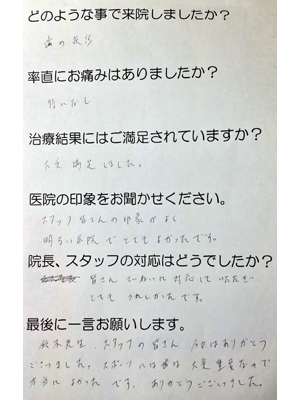 どのような事で来院しましたか？
歯の
率直にお痛みはありましたか？
なし
治療結果にはご満足されていますか？
大変 満足 しました。
医院の印象をお聞かせください。
スタッフ 皆さんの印象がよく
明るい医院で とてもよかったです。
院長、スタッフの対応はどうでしたか？
皆さん ていねいに 対応して いただき
とても うれしかったです。
最後に一言お願いします。
鈴木先生、スタッフの皆さん ありがとう
ございました。スポーツには歯は 大変 重要なので
本当に よかった です。 ありがとうございました。